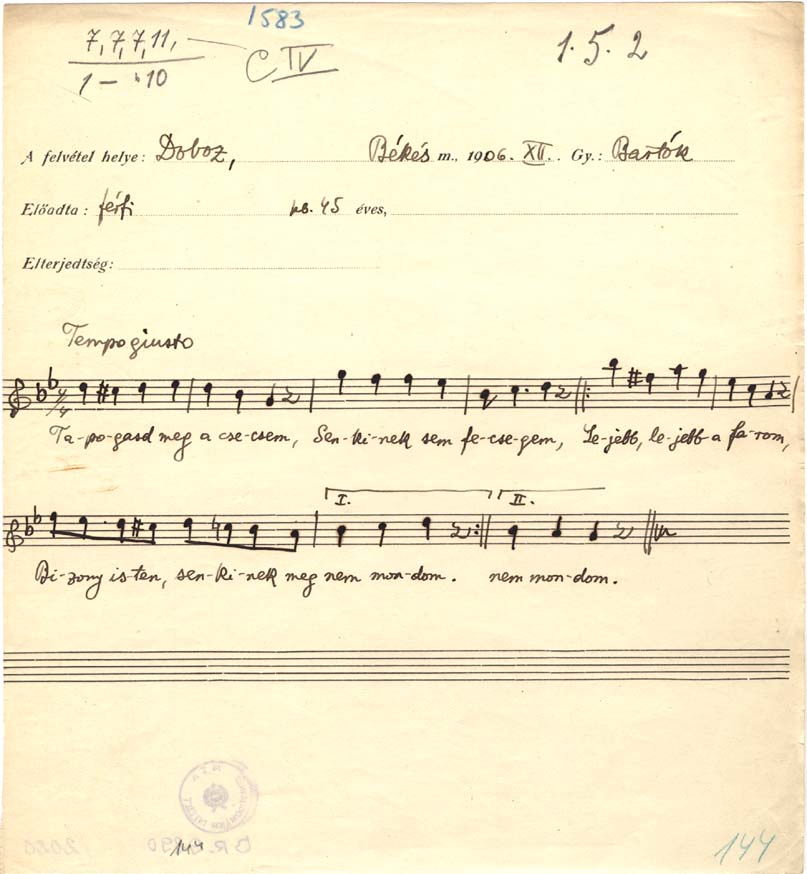 1583
7, 7, 7, 11,
1 – 10
C IV
1. 5. 2
A felvétel helye: Doboz, Békés m., 1906. XII. Gy.: Bartók
Előadta: férfi kb. 45 éves,
Elterjedtség:
Tempo giusto
4/4
Ta-po-gasd meg a cse-csem, Sen-ki-nek sem fe-cse-gem, Le-jebb, le-jebb a fa-rom,
I. II.
Bi-zony is-ten, sen-ki-nek meg nem mon-dom. nem mon-dom.
144
144